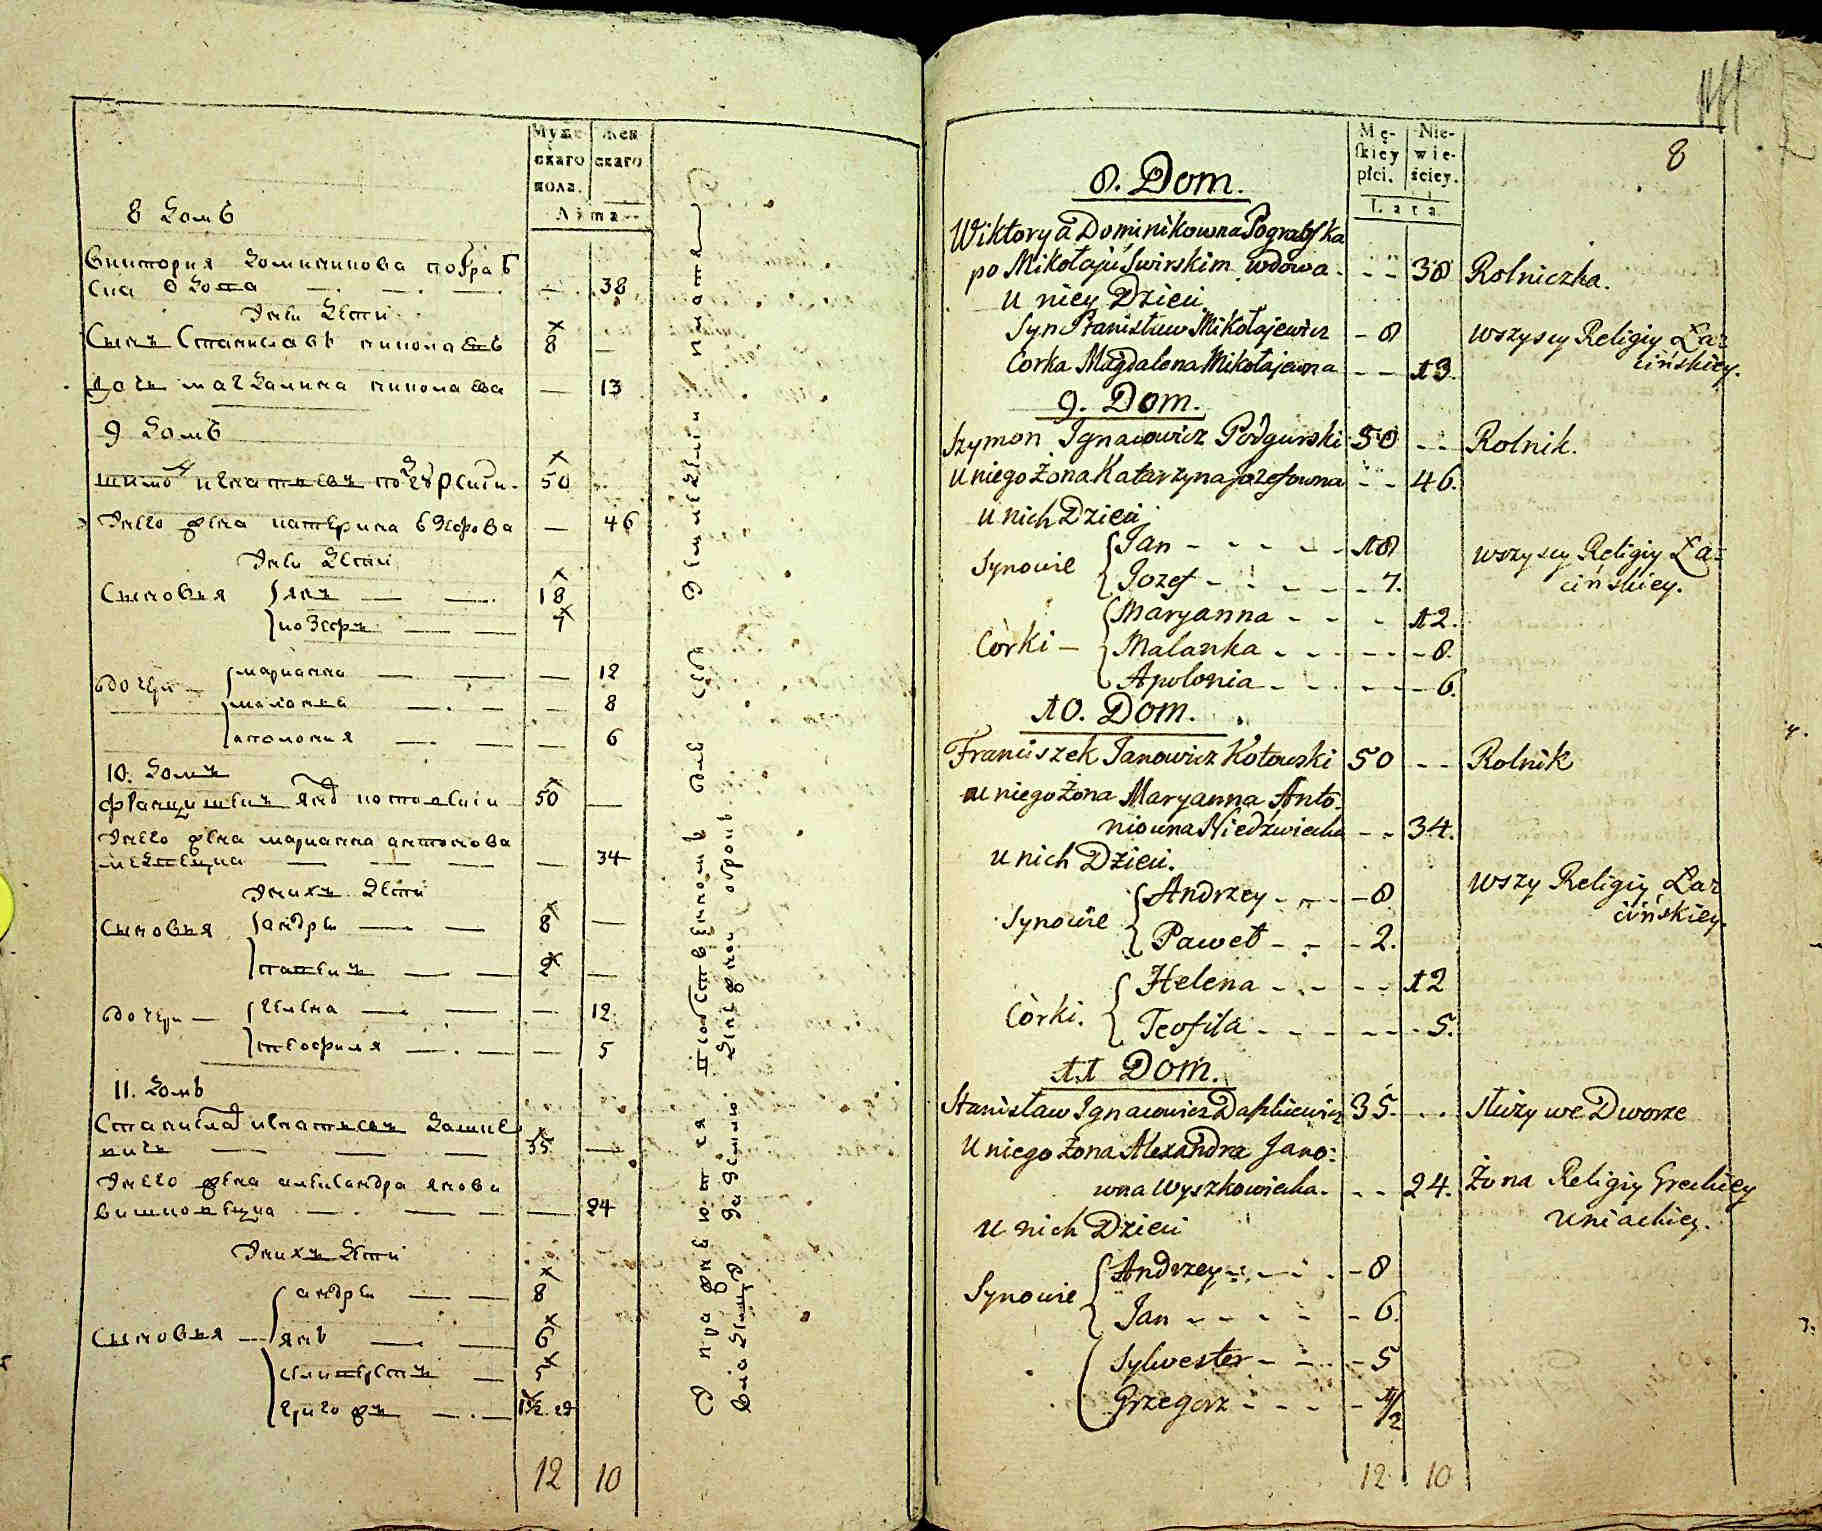 Муже
скаго
пола.
Жен
скаго
Лѣта
8 Домъ
Виктория Доминикова пограб
ска вдова 38
Унеи Дѣти
Сынъ Станиславъ николаевъ 8
дочь магдалина николаева 13
9 Домъ
шимон игнатьевъ подгурски 50
Унего жена катерина ѣзефова 46
Унихъ Дѣти
Сыновья янъ 18
иозефъ 7
дочери марианна 12
маланья 8
аполония 6
10. Домъ
францишекъ янов котовски 50
Унего жена марианна антонова
недвецка 34
Унихъ Дѣти
Сыновья андрей 8
павелъ 2
дочери елена 12
теофиля 5
11. Домъ
Станислав игнатьевъ дашке
вичъ 35
Унего жена александра янова
вишковецка 24
Унихъ Дѣти
андрей 8
Сыновья янъ 6
силвестръ 5
григоръ 1/2
12 10
8
Mę-
skiey
płci.
Nie-
wie-
ściey.
Lata
8. Dom.
Wiktorya Dominikowna Pograbska
po Mikołaju Swirskim wdowa - - 38 Rolniczka.
u niey Dzieci
Syn Stanisław Mikołajewicz - 8 wszyscy Religiy Ła=
Corka Magdalena Mikołajewna - - 13 cińskiey.
9. Dom.
Szymon Ignacowicz Podgurski 50 - - Rolnik.
u niego Żona Katarzyna Jozefowna - - 46.
u nich Dzieci
Synowie Jan - - - - 18 wszyscy Religiy Ła=
Jozef - - - - 7. cińskiey.
Maryanna - - - 12.
Còrki - Malanka - - - 8.
Apolonia - - - 6.
10. Dom.
Franciszek Janowicz Kotowski 50 - - Rolnik
u niego Żona Maryanna Anto-
niowna Niedzwiecka - - 34.
u nich Dzieci.
Andrzey - - - 8 wszy Religiy Ła=
Synowie cińskiey.
Paweł - - - 2.
Helena - - - - 12
Còrki.
Teofila - - - - 5.
11 Dom.
Stanisław Ignacowicz Daszkiewicz 35. - - służy we Dworze
u niego Żona Alexandra Jano=
wna Wyszkowiecka. - - 24. Żona Religiy Greckiey
u nich Dzieci uniackiey.
Andrzey - - - 8
Synowie
Jan - - - - 6.
Sylwester - - - 5
Grzegorz - - - 1/2
12 10